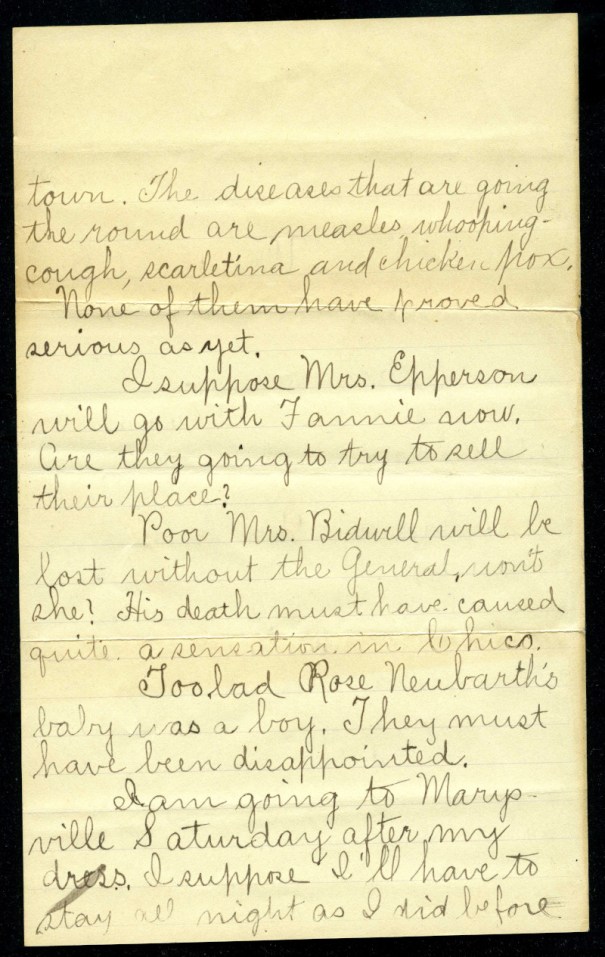 town. The diseases that are going
the round are measles, whooping-
cough, scarletina and chicken pox.
None of them have proved
serious as yet.
I suppose Mrs. Epperson
will go with Fannie now.
Are they going to try to sell
their place?
Poor Mrs. Bidwell will be
lost without the General, won't
she? His death must have caused
quite a sensation in Chico.
Too bad Rose Neubarth's
baby was a boy. They must
have been disappointed.
I am going to Marys-
ville Saturday after my
dress. I suppose I'll have to
stay all night as I did before